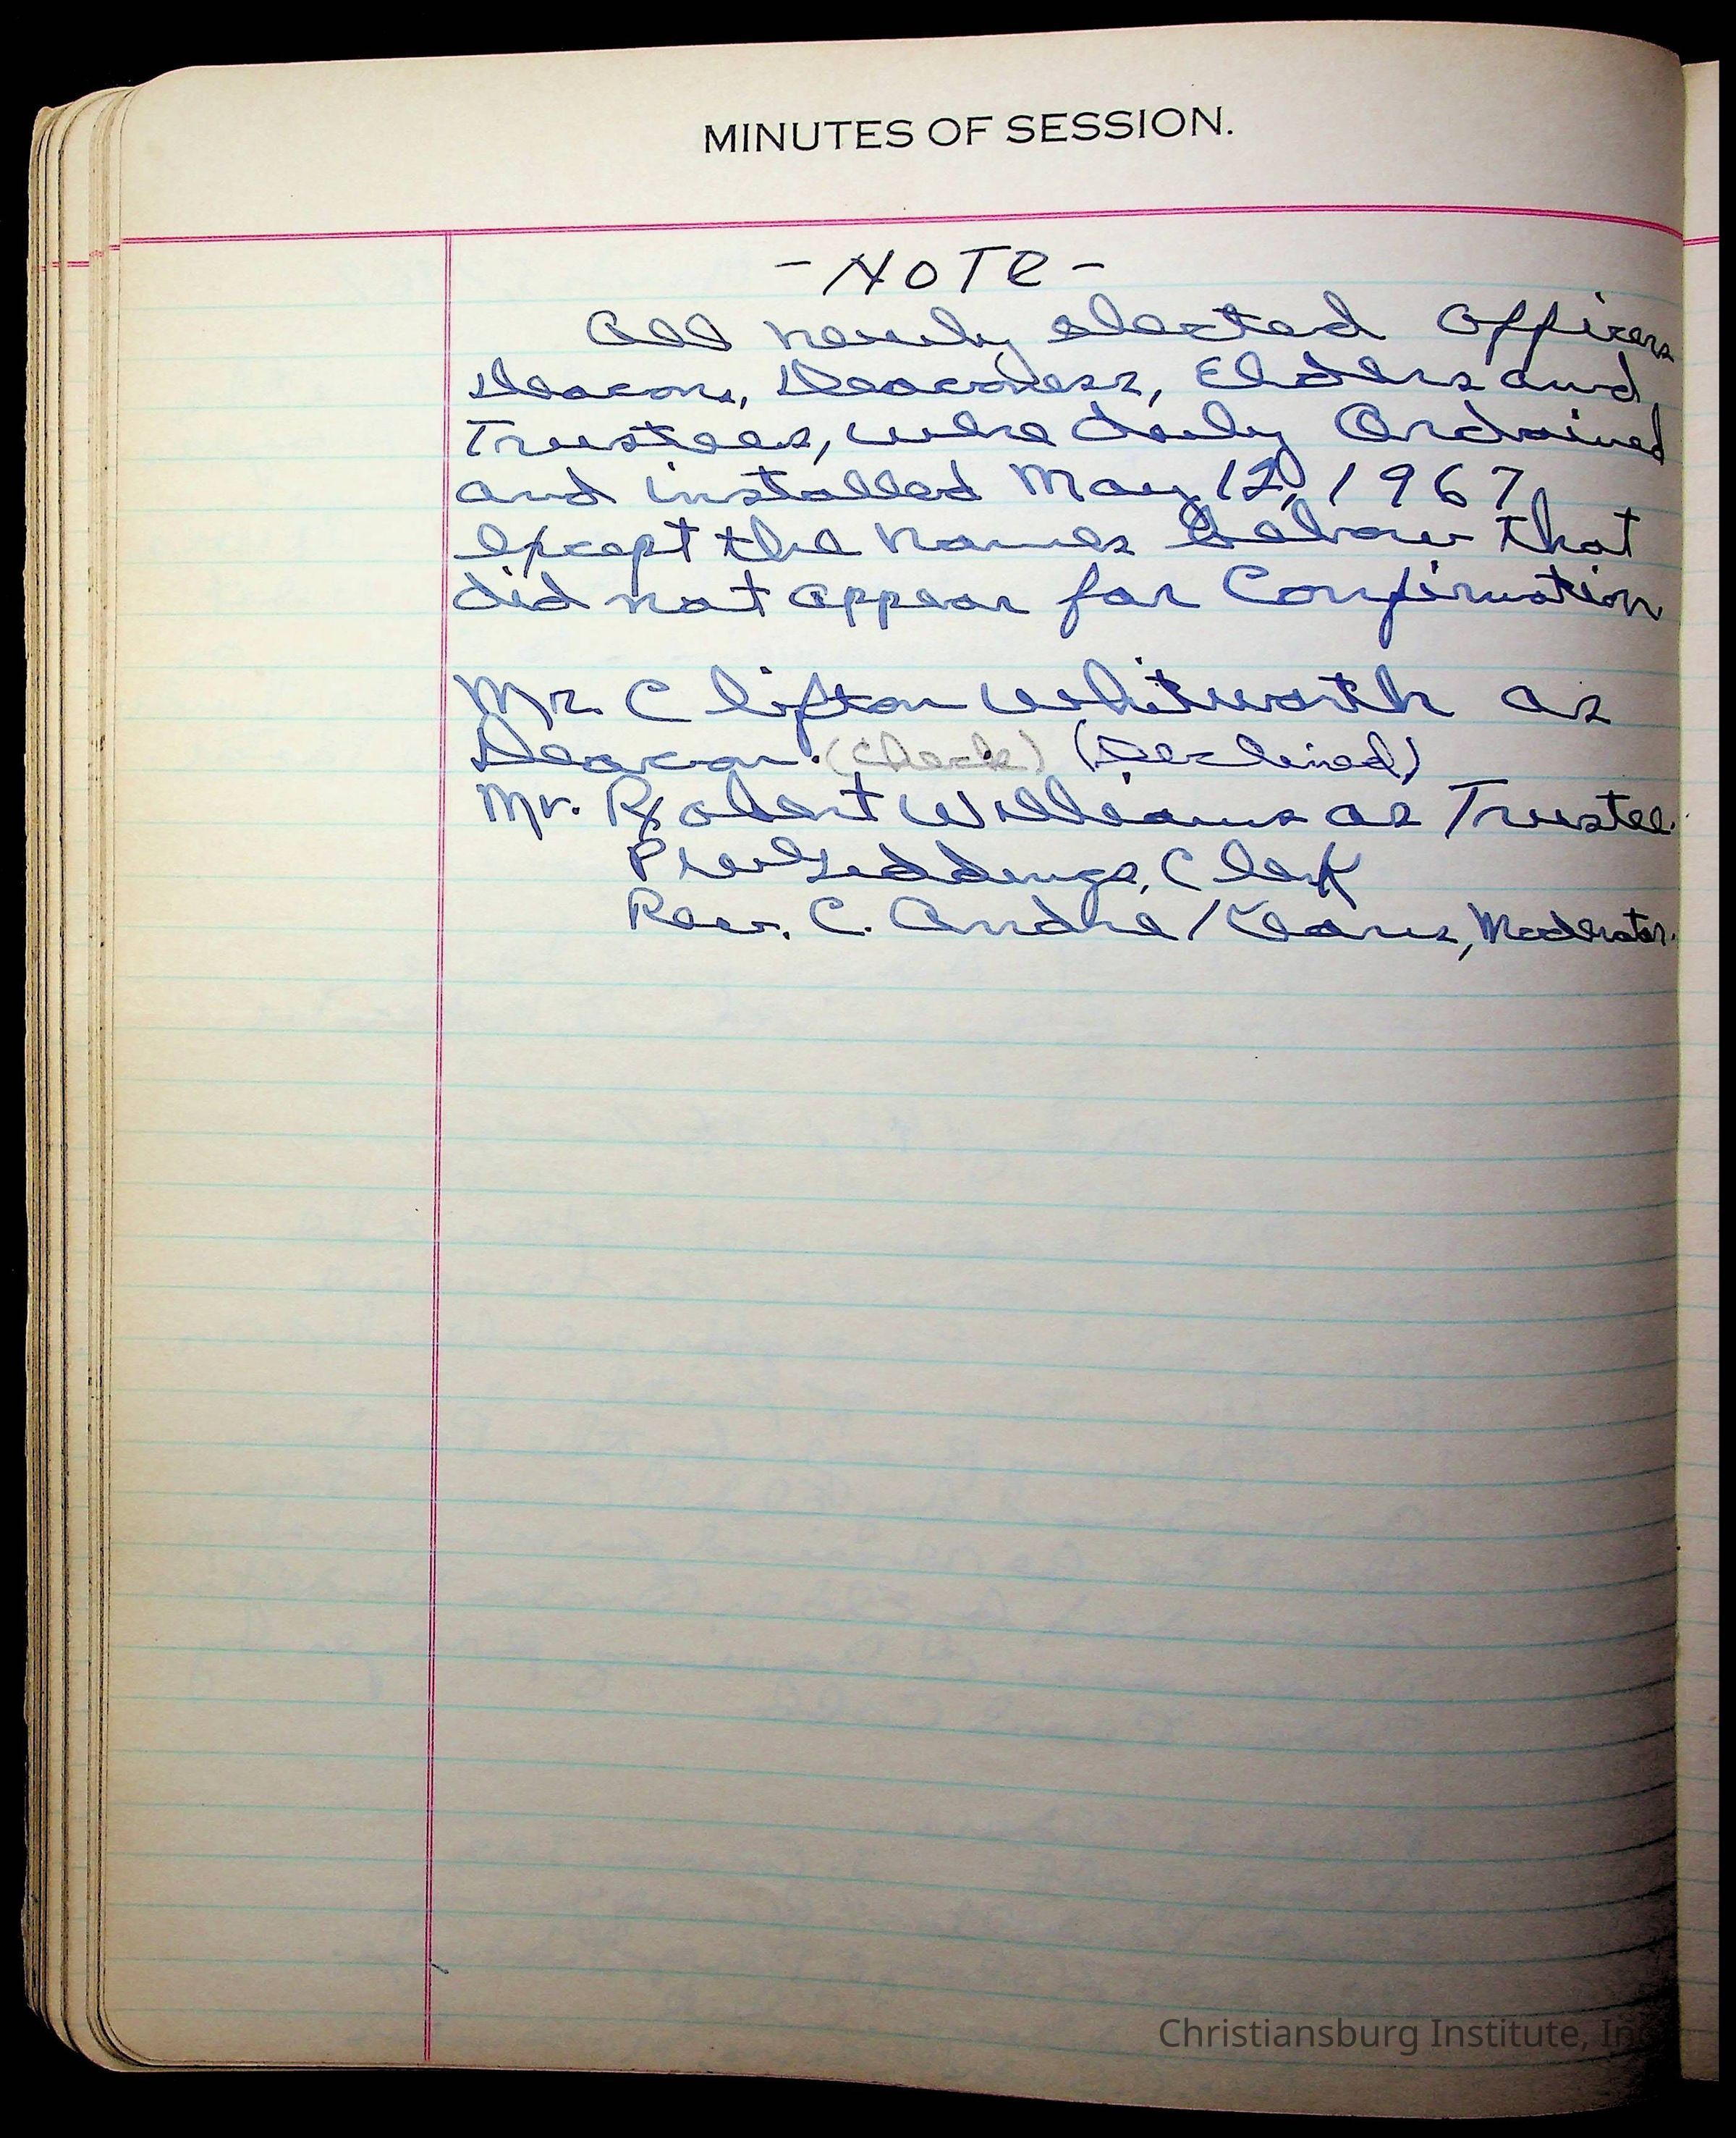 MINUTES OF SESSION.
- NOTE -
All newly elected officers
Deacon, Deaconess, Elders and
Trustees, were duly Ordained
and installed May 12, 1967
except the names below that
did not appear for Confirmation
Mr. Clifton Whitworth as
Deacon. (Check) (Declined)
Mr. Robert Williams as Trustee.
Giddings, Clerk
Rev. C. Andre Kearns, Moderator.
Christiansburg Institute, Inc